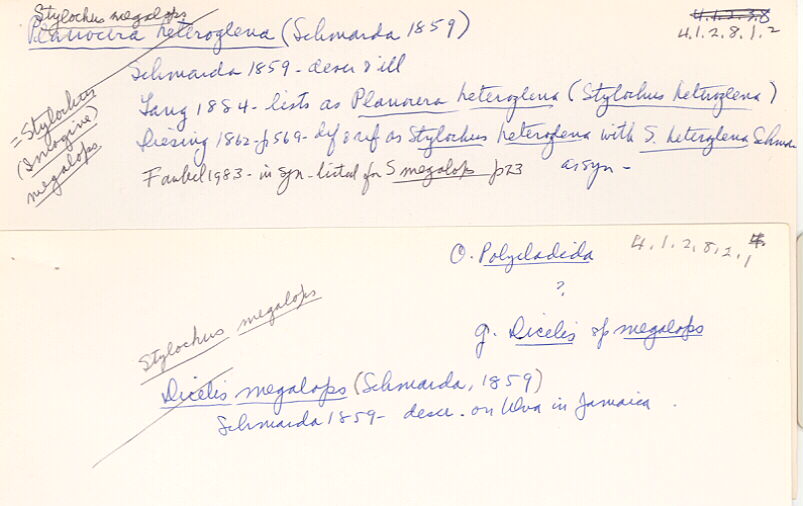 Stylochus megalops
4.1.2.3.8
Planocera heteroglena (Schmarda 1859)
4.1.2.8.1.2
Schmarda 1859 - descr & ill
Lang 1884 - lists as Planocera heteroglena (Stylochus heteroglena)
= Stylochus
(Imogine)
megalops
Diesing 1862 - p569 - dif & rif as Stylochus heteroglena with S. heteroglena Schmar
Faubel 1983 - in syn - listed for S megalops p23 as syn -
O. Polycladida
4.1.2.8.2.1
?
g. Dicelis sp megalops
Stylochus megalops
Dicelis megalops (Schmarda, 1859)
Schmarda 1859 - descr. on Ulva in Jamaica.